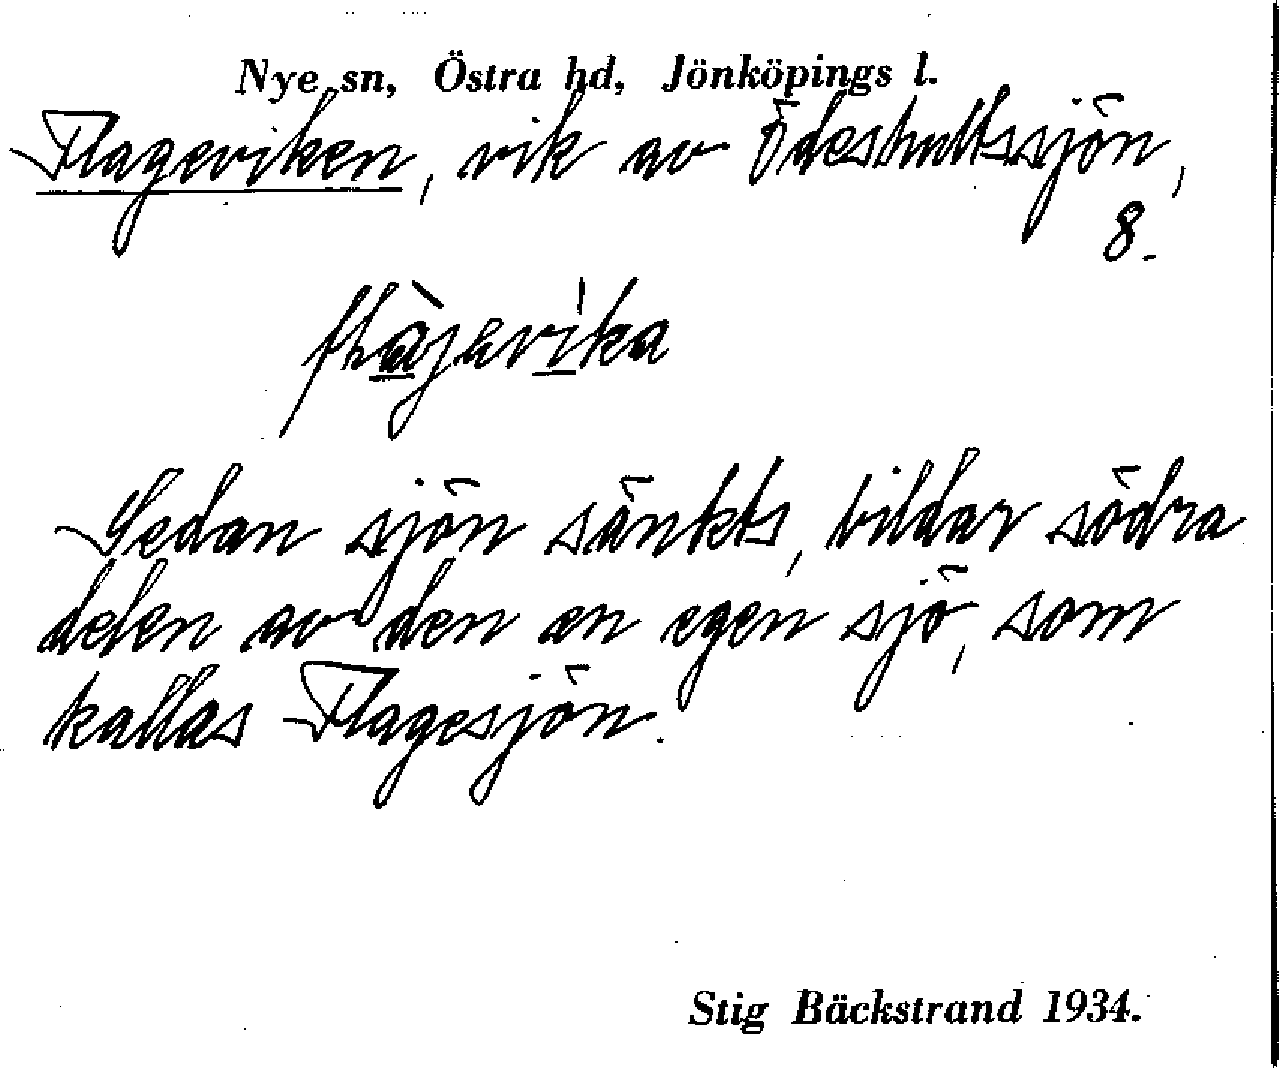 Nye sn, Östra hd, Jönköpings l.
Flageviken, vik av Ödeshultssjön,
8.
Sedan sjön sänkts, bildar södra
delen av den en egen sjö, som
kallas Flagesjön.
Stig Bäckstrand 1934.